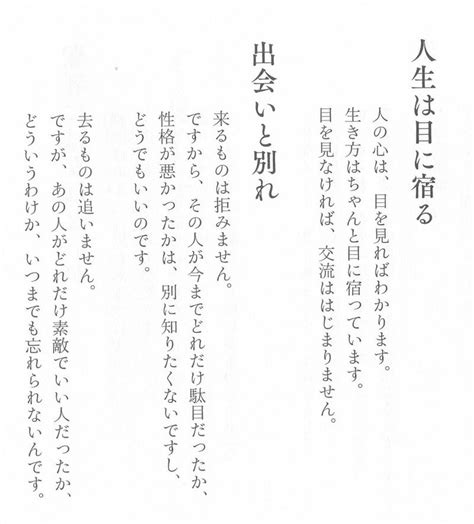 人生は目に宿る
人の心は、目を見ればわかります。
生き方はちゃんと目に宿っています。
目を見なければ、交流ははじまりません。
出会いと別れ
来るものは拒みません。
ですから、その人が今までどれだけ駄目だったか、
性格が悪かったかは、別に知りたくないですし、
どうでもいいのです。
去るものは追いません。
ですが、あの人がどれだけ素敵でいい人だったか、
どういうわけか、いつまでも忘れられないんです。